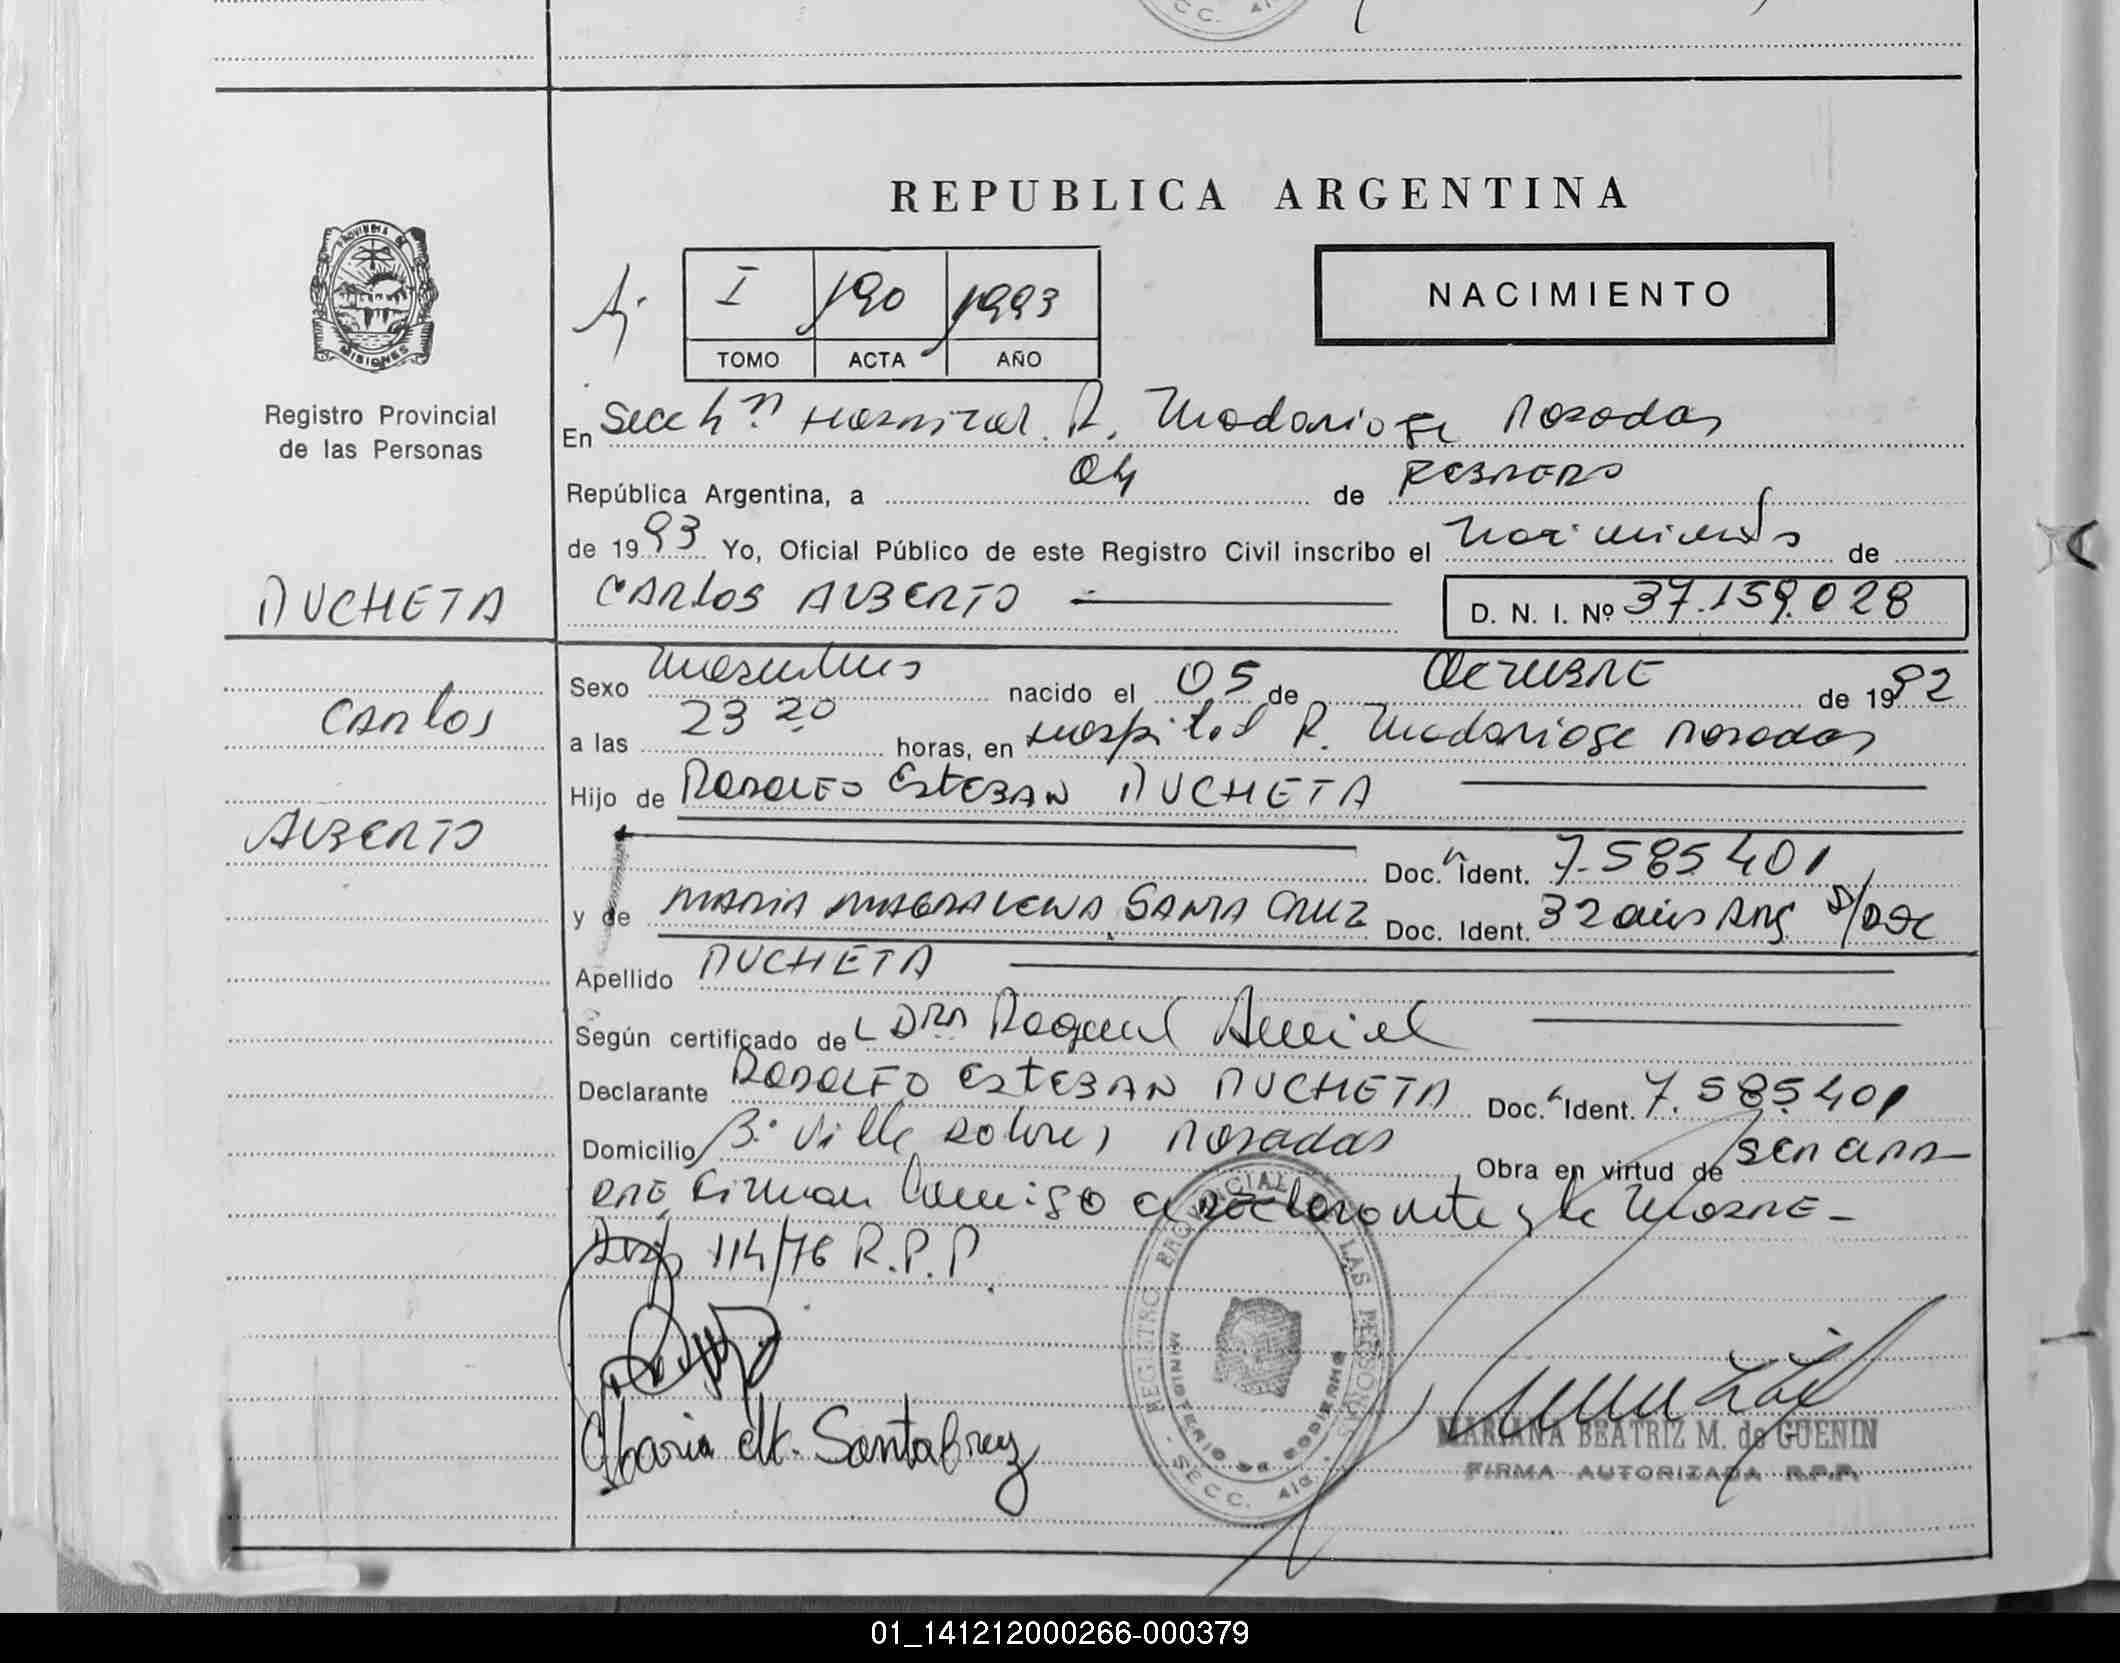 REPUBLICA ARGENTINA
NACIMIENTO
I 190 1993
TOMO ACTA AÑO
PROVINCIA DE MISIONES
Registro Provincial
de las Personas
En Secc 4ª Hospital R. Madariaga Posadas
República Argentina, a 04 de FEBRERO
de 1993 Yo, Oficial Público de este Registro Civil inscribo el Nacimiento de
CARLOS ALBERTO D. N. I. Nº 37.159.028
CARLOS
ALBERTO
Sexo Masculino nacido el 05 de OCTUBRE de 1992
a las 23 20 horas, en Hospital R. Madariaga Posadas
Hijo de RODOLFO ESTEBAN
Doc. Ident. 7.585401
y de MARIA MAGDALENA SANTA CRUZ Doc. Ident. 32 años Arg S/Doc
Apellido
Según certificado de L Dra Raquel
Declarante RODOLFO ESTEBAN Doc. Ident. 7.585.401
Domicilio Bº Posadas Obra en virtud de SER
firman conmigo el declarante y la MADRE -
Disp 114/76 R.P.P.
Maria M. Santa Cruz
REGISTRO PROVINCIAL DE LAS PERSONAS
MINISTERIO DE GOBIERNO
SECC. 4ta
MARIANA BEATRIZ M. de GUENIN
FIRMA AUTORIZADA R.P.P.
01_141212000266-000379